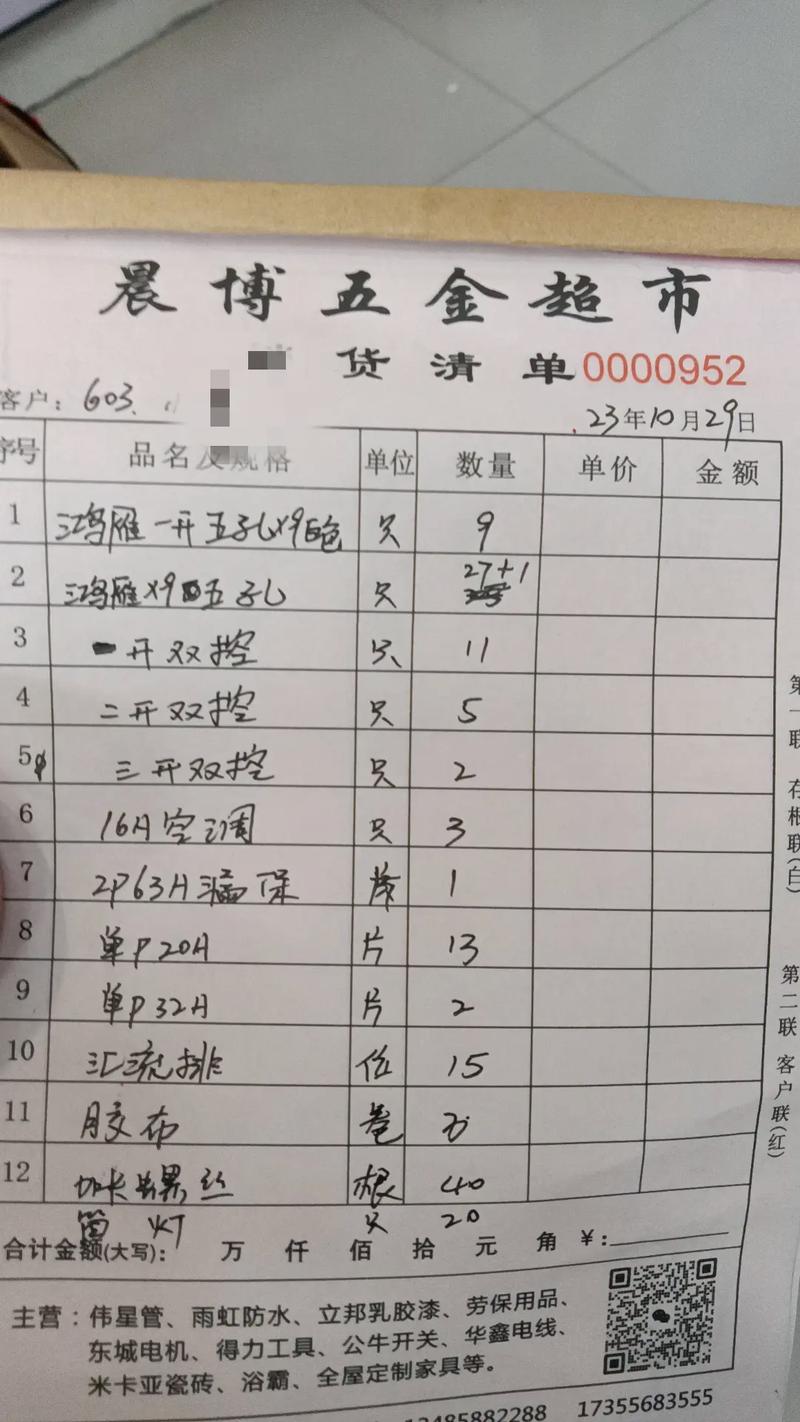 晨博五金超市
货清单0000952
客户：603.
23年10月29日
序号 品名及规格 单位 数量 单价 金额
1 鸿雁一开五孔X9白色 只 9
2 鸿雁X9 五孔 只 27+1
3 一开双控 只 11
4 二开双控 只 5
5 三开双控 只 2
6 16A空调 只 3
7 2P63A漏保 1
8 单P20A 片 13
9 单P32A 片 2
10 汇流排 位 15
11 胶布 卷
12 加长螺丝 根 40
筒灯 只 20
合计金额(大写)： 万 仟 佰 拾 元 角 ¥：
主营：伟星管、雨虹防水、立邦乳胶漆、劳保用品、
东城电机、得力工具、公牛开关、华鑫电线、
米卡亚瓷砖、浴霸、全屋定制家具等。
17355683555
第一联 存根联(白)
第二联 客户联(红)